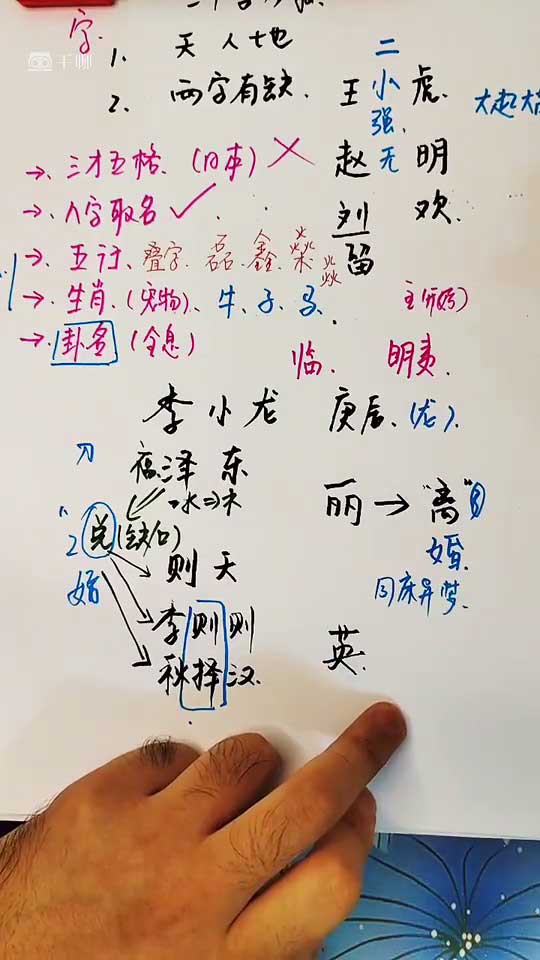 字
千聊
1. 天 人 地
2. 两字有缺. 王小虎.
二
强.
→ 三才五格. (日本) ×
赵无明
→ 八字取名 ✓
刘 欢.
→ 五行、叠字. 磊. 鑫. 燚
留
→ 生肖.(宠物)、牛、子、马.
→ 卦名 (全息)
临. 明夷.
李小龙 庚辰.(龙).
福泽 东
刀
水⇒木
丽→"离"
兑(缺口)
则天
婚.
同床异梦.
婚
李则则
秋择汉.
英.